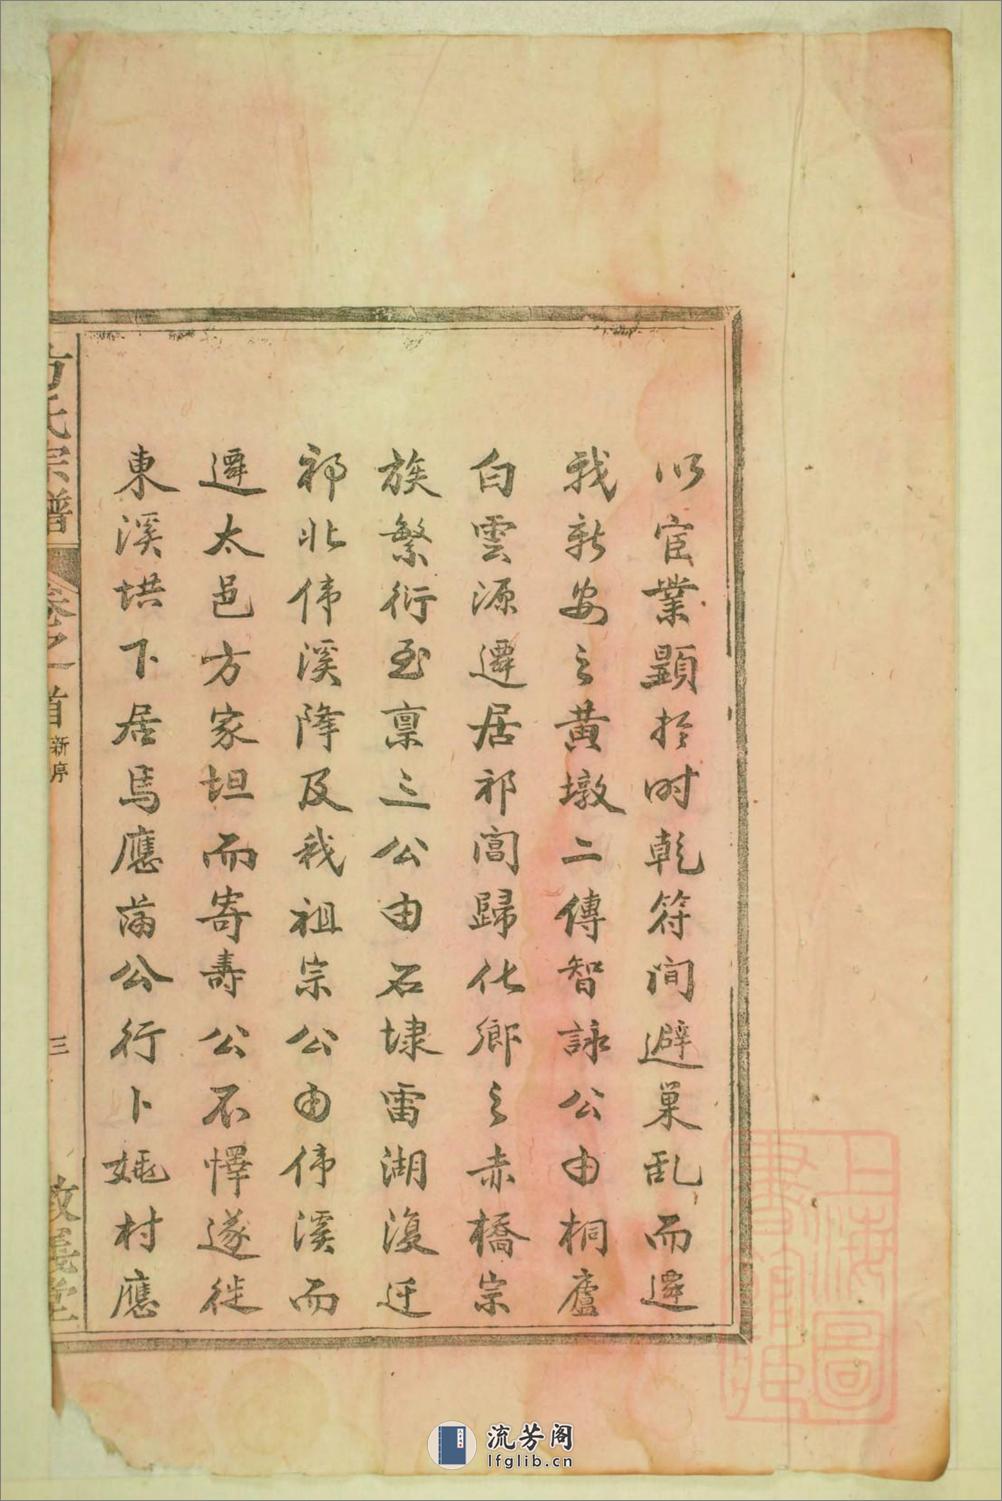 以宦業顯於时乾符间避巢乱而遷
我新安之黄墩二傳智詠公由桐廬
白雲源遷居祁閶歸化鄉之赤橋宗
族繁衍至禀三公由石埭雷湖復迁
祁北伟溪降及我祖宗公由伟溪而
遷太邑方家坦而寄壽公不懌遂徙
東溪垬下居馬應蒲公行卜村應
方氏宗譜
卷之一首
新序
三
敦義堂
上海圖書館藏
流芳阁
lfglib.cn